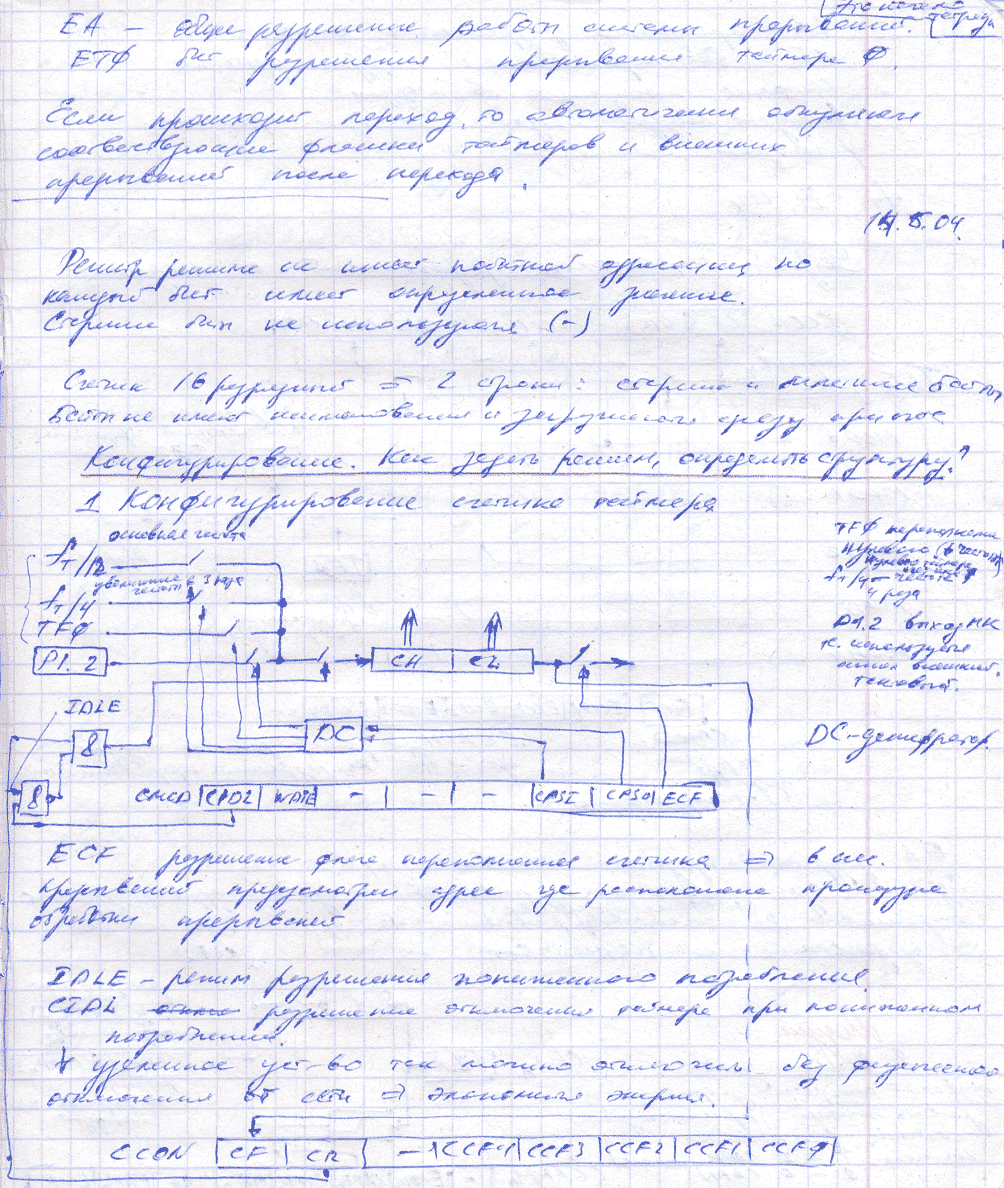 Это начало
тетради
EA – общее разрешение работы системы прерываний.
ETØ бит разрешения прерывания таймера Ø.
Если происходит переход, то автоматически обнуляются
соответствующие флажки таймеров и внешних
прерываний после перехода.
14.5.04.
Регистр режима не имеет побитной адресации но
каждый бит имеет определенное значение.
Старшие биты не используются (-)
Счетчик 16 разрядный ⇒ 2 строки: старшие и младшие байты
Байты не имеют и загружаются сразу при
Конфигурирование. Как задать режим, определить структуру?
1 Конфигурирование счетчика таймера
основная частота
fT/12
увеличение в 3 раза
частоты
fT/4
TFØ
P1.2
CH CL
TFØ переполнение
нулевого
нулевого таймера
fT/4 – частота
4 раза
P1.2 выход МК
т. используется
внешний
тактовый.
IDLE
&
&
DC
DC-дешифратор.
CMOD CIDL WDTE – – – CPS1 CPS0 ECF
ECF разрешение флага переполнения счетчика ⇒ в сис.
прерываний предусмотрен адрес где расположена процедура
обработки прерываний
IDLE – режим разрешения пониженного потребления.
CIDL разрешение отключения таймера при пониженном
потреблении.
∀ удаленное уст-во так можно отключить без физического
отключения от сети ⇒ экономия энергии.
CCON CF CR – CCF4 CCF3 CCF2 CCF1 CCFØ